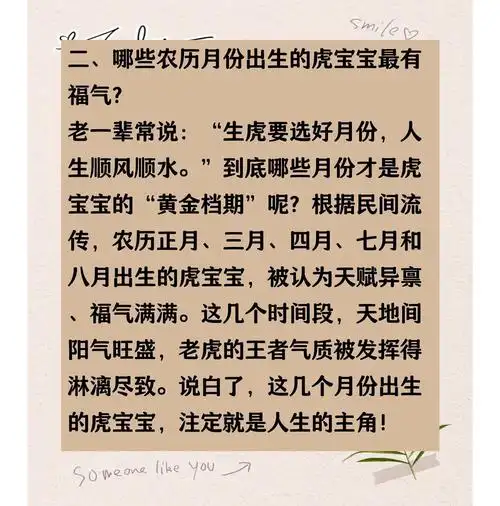 smile♡
二、哪些农历月份出生的虎宝宝最有
福气？
老一辈常说：“生虎要选好月份，人
生顺风顺水。”到底哪些月份才是虎
宝宝的“黄金档期”呢？根据民间流
传，农历正月、三月、四月、七月和
八月出生的虎宝宝，被认为天赋异禀
、福气满满。这几个时间段，天地间
阳气旺盛，老虎的王者气质被发挥得
淋漓尽致。说白了，这几个月份出生
的虎宝宝，注定就是人生的主角！
Someone like you